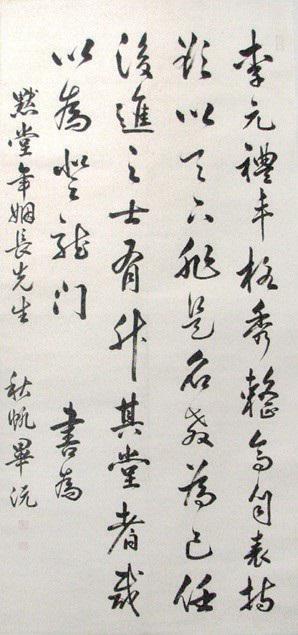 李元禮丰格秀整高自表持
欲以天下非是名教為己任
後進之士有升其堂者咸
以為登龍門 書為
默堂年姻長先生 秋帆畢沅